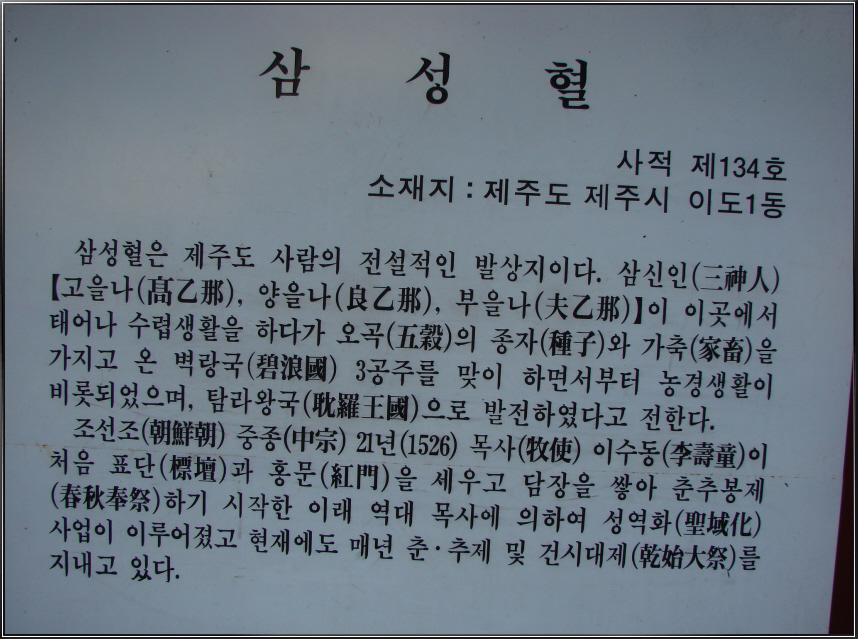 삼 성 혈
사적 제134호
소재지 : 제주도 제주시 이도1동
삼성혈은 제주도 사람의 전설적인 발상지이다. 삼신인(三神人)
【고을나(髙乙那), 양을나(良乙那), 부을나(夫乙那)】이 이곳에서
태어나 수렵생활을 하다가 오곡(五穀)의 종자(種子)와 가축(家畜)을
가지고 온 벽랑국(碧浪國) 3공주를 맞이 하면서부터 농경생활이
비롯되었으며, 탐라왕국(耽羅王國)으로 발전하였다고 전한다.
조선조(朝鮮朝) 중종(中宗) 21년(1526) 목사(牧使) 이수동(李壽童)이
처음 표단(標壇)과 홍문(紅門)을 세우고 담장을 쌓아 춘추봉제
(春秋奉祭)하기 시작한 이래 역대 목사에 의하여 성역화(聖域化)
사업이 이루어졌고 현재에도 매년 춘·추제 및 건시대제(乾始大祭)를
지내고 있다.